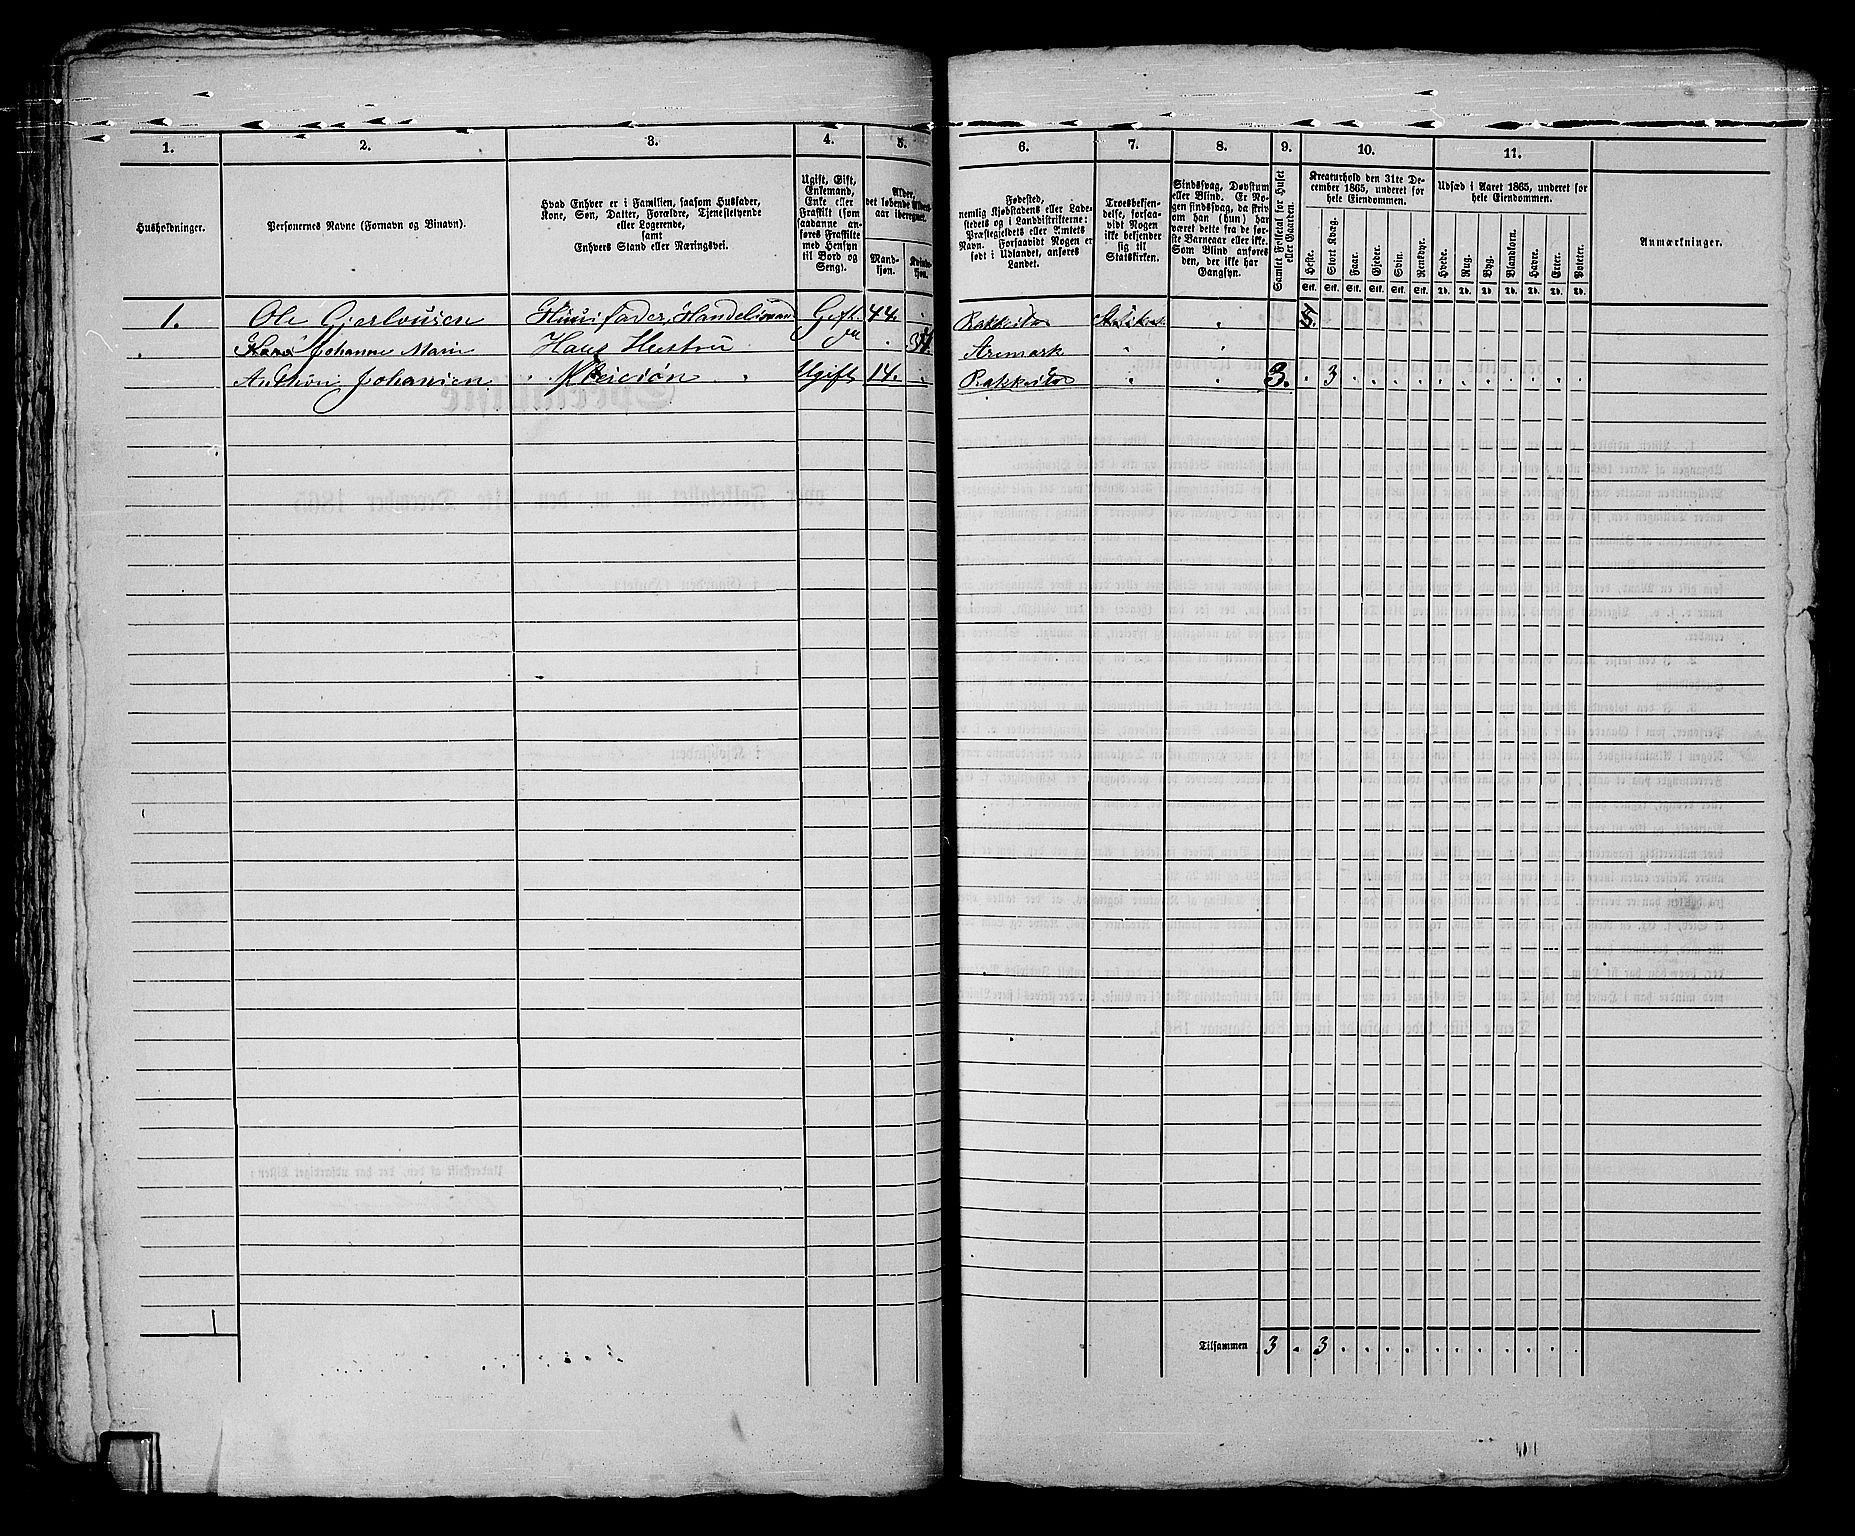 1. 2. 3. 4. 5.
Husholdninger.
Personernes Navne (Fornavn og Binavn).
Hvad Enhver er i Familien, saasom Husfader,
Kone, Søn, Datter, Forældre, Tjenestetyende
eller Logerende,
samt
Enhvers Stand eller Næringsvei.
Ugift, Gift,
Enkemand,
Enke eller
Fraskilt (som
saadanne an-
føres Fraskilte
med Hensyn
til Bord og
Seng).
Alder,
det løbende Alders-
aar iberegnet.
Mand-
kjøn.
Kvinde-
kjøn.
1. Ole Husfader, Handelsmand Gift 44.
Johanne Marie Hans Hustru
Anthon Johansen Ugift 14.
1
6. 7. 8. 9. 10. 11.
Fødested,
nemlig Kjøbstadens eller Lade-
stedets og i Landdistrikterne:
Præstegjeldets eller Amtets
Navn. Forsaavidt Nogen er
født i Udlandet, anføres
Landet.
Troesbekjen-
delse, forsaa-
vidt Nogen
ikke bekjender
sig til
Statskirken.
Sindssvag, Døvstum
eller Blind. Er No-
gen sindssvag, da skriv
om han (hun) har
været dette fra de før-
ste Barneaar eller ikke.
Som Blind anføres
den, der ikke har
Gangsyn.
Samlet Folketal for Huset
eller Gaarden.
Kreaturhold den 31te De-
cember 1865, underet for
hele Eiendommen.
Heste. Stort Kvæg. Faar. Gjeder. Svin. Rensdyr.
Stk. Stk. Stk. Stk. Stk. Stk.
Udsæd i Aaret 1865, underet for
hele Eiendommen.
Hvede. Rug. Byg. Blandkorn. Havre. Erter. Poteter.
Td. Td. Td. Td. Td. Td. Td.
Anmærkninger.
Rakkestad
Aremark
Rakkestad 3. 3
Tilsammen 3 . 3